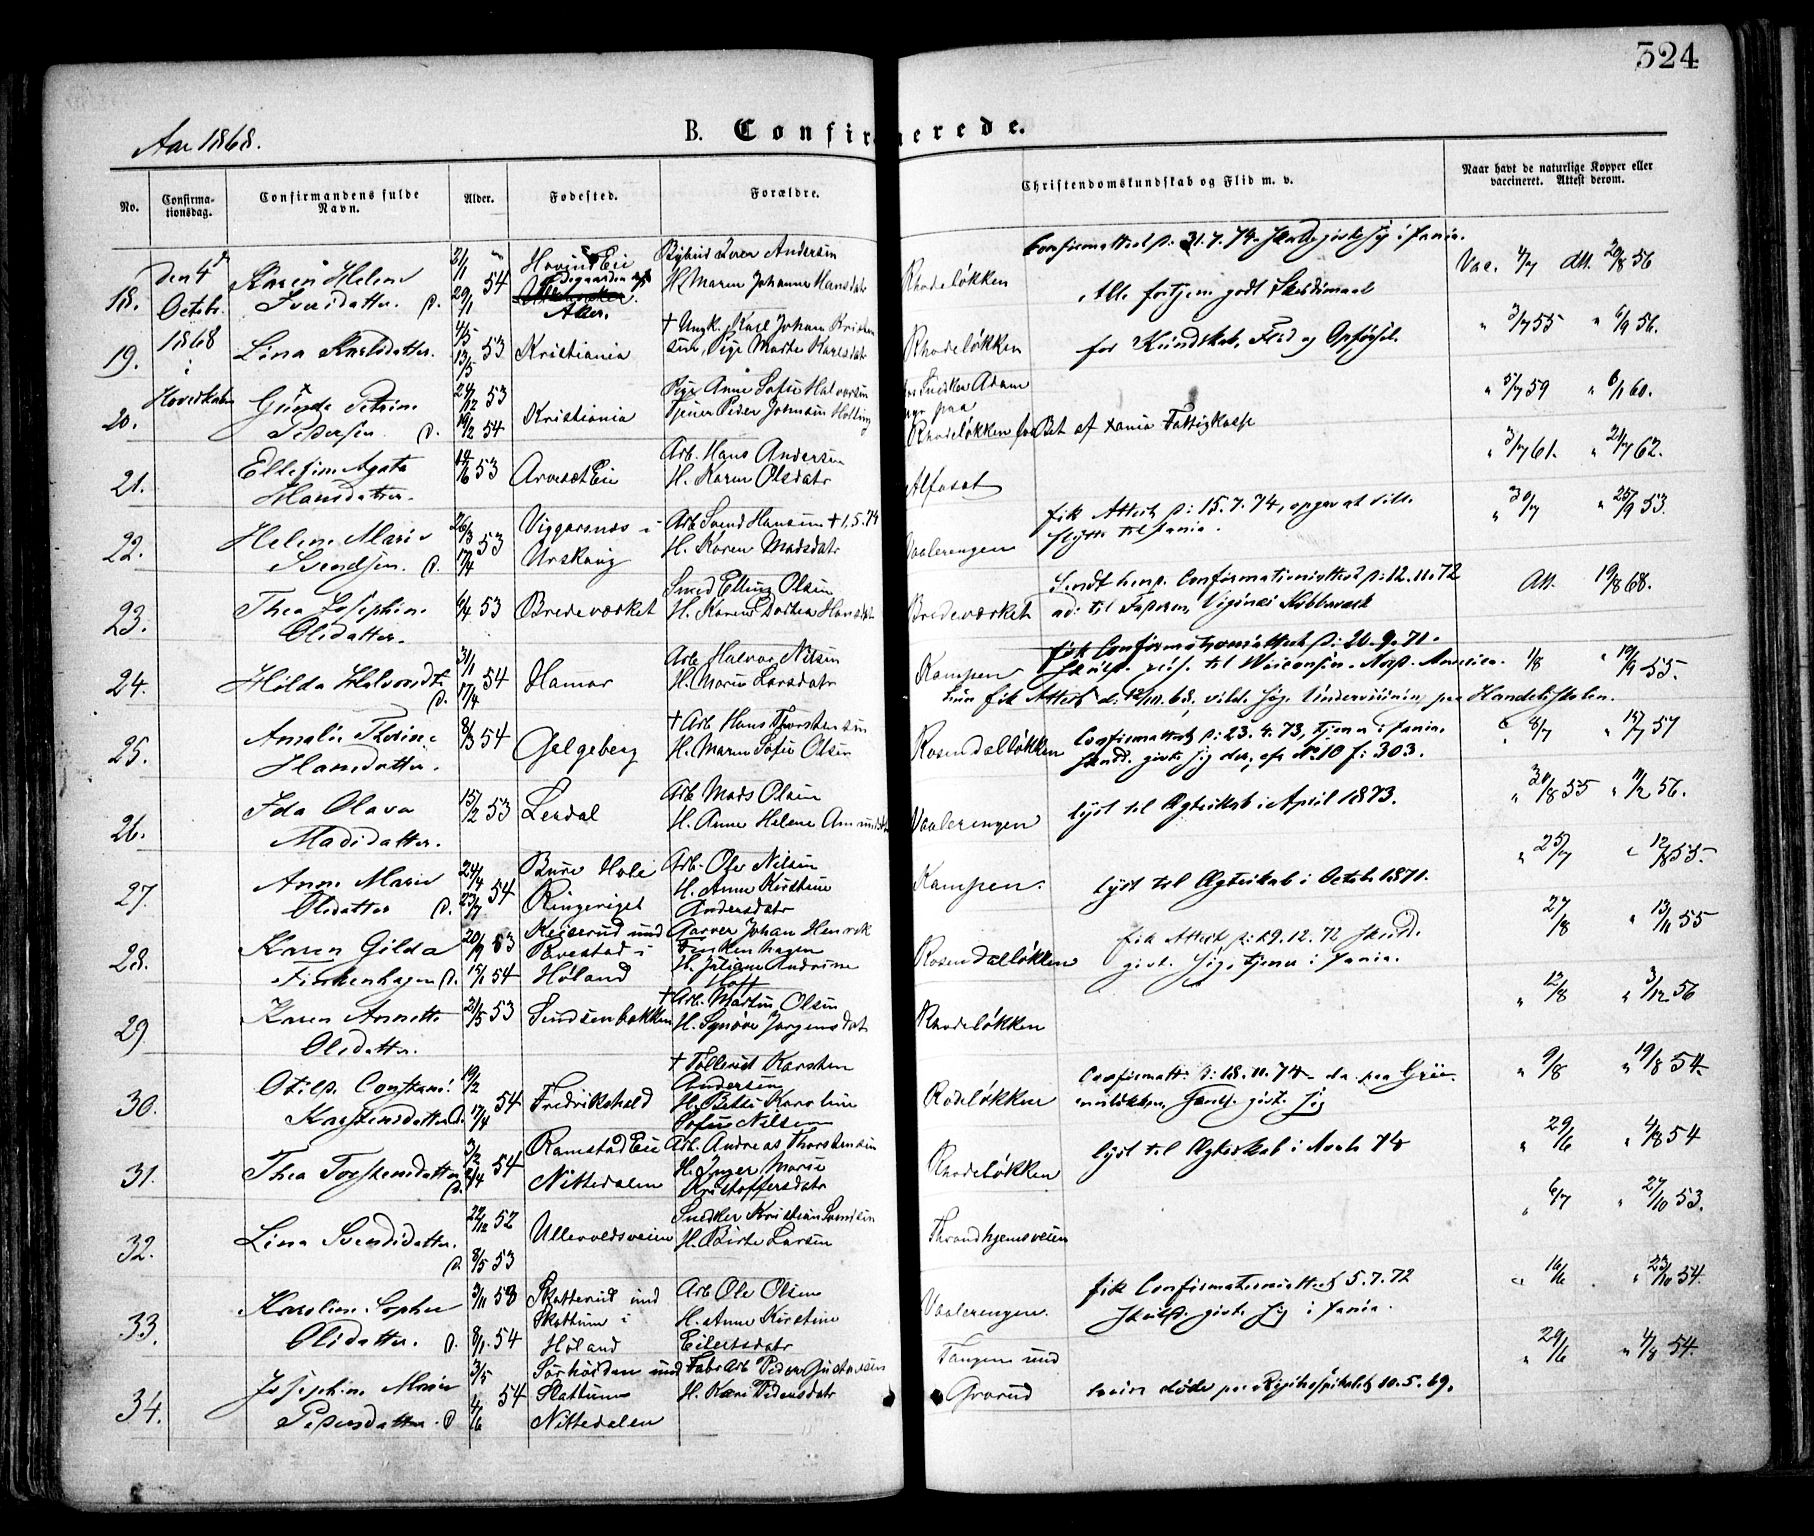 324
Aar 1868.
B. Confirmerede.
No.
Confirma-
tionsdag.
Confirmandens fulde
Navn.
Alder.
Fødested.
Forældre.
Christendomskundskab og Flid m. v.
Naar havt de naturlige Kopper eller
vaccineret. Attest derom.
18. den 4de Octobr. Karen Helene 21/1 54 29/1 Hovind Eie Aker.
H. Maren Johanne Hansdatr Rhodeløkken
Alle fortjene godt Skudsmaal
Vac. 4/7 Att. 29/8 56
19. 1868 i Lina Karlsdatter. 4/5 53 13/5 Kristiania
† Ungk. Karl Johan Kristen
sen, Pige Marthe Karlsdatr Rhodeløkken
for Kundskab, Flid og Opførsel.
" 3/7 55 " 6/9 56.
20. Hovedkirken Gunda Petrine
Pedersen. d. 24/12 53 19/2 54 Kristiania
Pige Anne Sofie Halvorsen
Tjener Peder Johnsen
Snedker Adam
paa
Rhodeløkken for Bet af Xania Fattigkasse
" 5/7 59 " 6/1 60.
21. Ellefine Agate
Hansdatter. 53
Arb. Hans Andersen
H. Karen Olsdatr
Alfaset
" 3/7 61. " 21/7 62.
22. Helene Marie
Svendsen. d. 26/3 53 17/4
Viggarsnæs i
Urskoug
Arb. Svend Hansen † 1.5.74
H. Karen Madsdatr
Vaalerengen
fik Attest d: 15.7.74, opgav at ville
flytte til Xania.
" 30/7 " 25/9 53.
23. Thea Josephine
Olsdatter. 6/4 53 Bredeværket
Smed Elling Olsen
H. Karen Dorthea Hansdatr
Bredeværket
Sendt hende Confirmationsattest d: 12.11.72
Att. 19/8 68.
24. Hilda Halvorsdt.
d. 31/1 54 17/4 Hamar
Arb. Halvor Nilsen
H. Marie Larsdatr
Kampen
fik Confirmationsattest d: 20.9.71.
skulde reise til Wisconsin. Nord. America.
1/8 " 19/9 55.
hun fik Attest d: 12/11.68, vilde søge Underviisning paa Handelsskolen.
25. Amalie Thorine
Hansdatter. 8/3 54 Galgeberg
† Arb. Hans Thorstensen
H. Maren Sofie Olsen
Rosendalløkken
Confirmattest d: 23.4.73, tjener i Xania
skulde gifte sig der, cfr. No 10 f: 303.
" 8/7 " 15/7 57
26. Ida Olava
Madsdatter. 15/2 53 Lerdal
Arb. Mads Olsen
H. Anne Helene Amundsdatr
Vaalerengen
lyst til Ægteskab i April 1873.
" 30/8 55 " 11/2 56.
27. Anne Marie
Olsdatter d. 24/4 54 23/7
Bure Hole
Ringeriget
Arb. Ole Nilsen
H. Anne Kirstine
Andersdatr
Kampen.
lyst til Ægteskab i Octob. 1871.
" 25/7 " 12/8 55.
28. Karen Gilda
Finkenhagen d. 20/9 53 15/1 54
Keiserud und
Povestad i
Høland
Garver Johan Henrik
Finkenhagen
H. Juliane Andrine
Hoff
Rosendalløkken
fik Attest d: 19.12.72 skulde
gifte sig, tjener i Xania.
27/8 " 13/11 55
29 Karen Annette
Olsdatter. 21/5 53 Svedsenbakken
† Arb. Martin Olsen
H. Synøve Jørgensdatr
Rhodeløkken
" 12/8 " 3/12 56
30. Otilie Constance
Karstensdatter d. 19/2 54 17/4 Fredrikshald
† Tollerud Karsten
Andersen
H. Betti Karoline
Sofie Nilsen
Rodeløkken
Confirmatt: d: 18.11.74 da paa Grü-
nerløkken, skulde gifte sig
" 9/8 " 19/8 54.
31. Thea Torstensdatter
d. 3/2 54 2/4
Ramstad Eie
Nittedalen
Arb. Andreas Thorstensen
H. Inger Marie
Kristoffersdatr
Rhodeløkken
lyst til Ægteskab i Novbr 74
" 29/6 " 4/8 54
32. Lina Svendsdatter.
d. 22/12 52 8/5 53 Ullevoldsveien
Snedker Kristian Svendsen
H. Birte Larsen
Throndhjemsveien
" 6/7 " 27/10 53.
33. Karoline Sophie
Olsdatter. d. 3/11 53 8/1 54
Skatterud und
Skattum i
Høland
Arb Ole Olsen
H. Anne Kirstine
Eilertsdatr
Vaalerengen.
fik Confirmationsatt. d 5.7.72
skulde gifte sig i Xania.
" 16/6 " 23/10 54.
34. Josephine Marie
Pedersdatter. d 3/5 54 4/6
Sørholden und
Slattum
Nittedalen
Fabr Arb Peder Gustavsen
H. Kari Pedersdatr
Tangen und
Grorud
døde paa Rigshospitalet 10.5.69.
" 29/6 " 4/8 54.